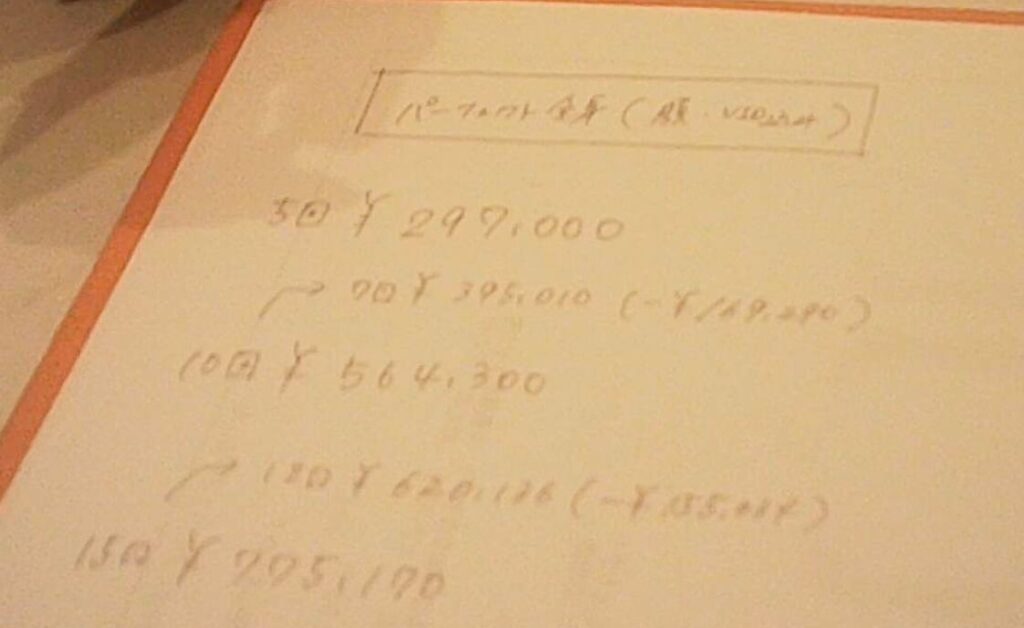 パーフェクト全身(顔・VIO込み)
5回 ¥297,000
7回 ¥395,010 (-¥169,290)
10回 ¥564,300
12回 ¥620,136 (-¥155,034)
15回 ¥775,170